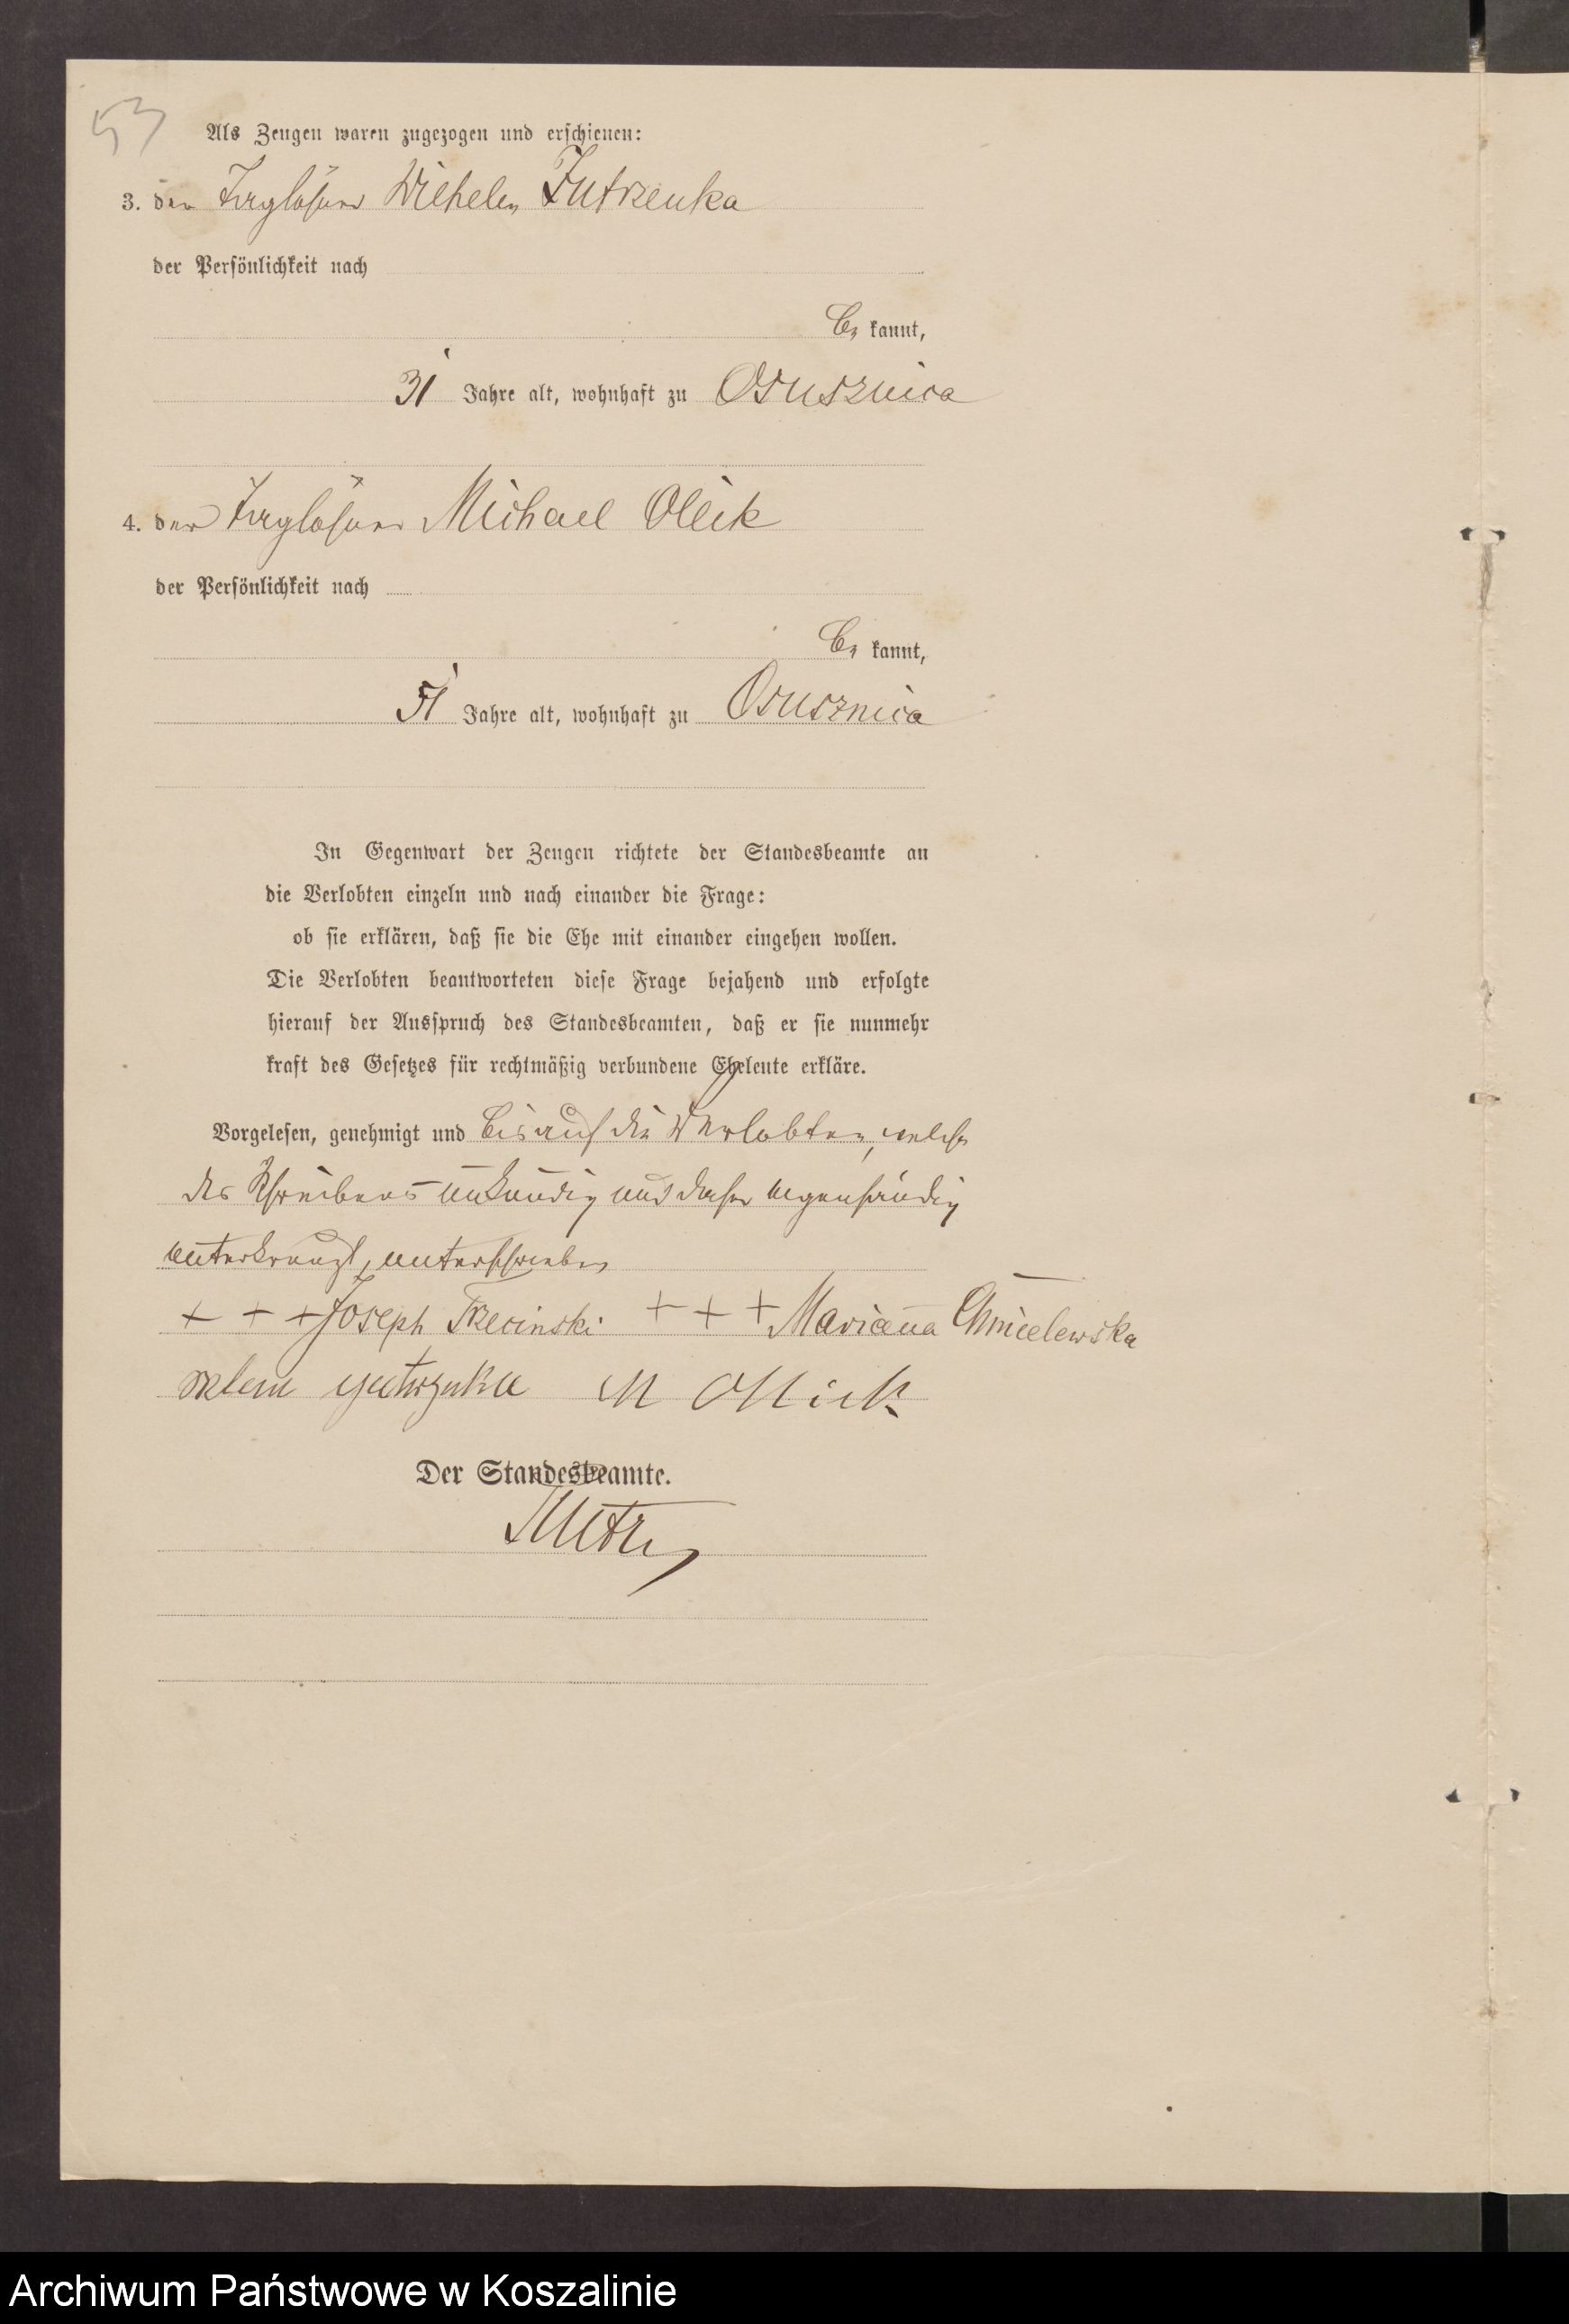 53
Als Zeugen waren zugezogen und erschienen:
3. der Tagelöhner Wilhelm Jutrzenka
der Persönlichkeit nach
be kannt,
31 Jahre alt, wohnhaft zu Osusznica
4. der Tagelöhner Michael Ollik
der Persönlichkeit nach
be kannt,
51 Jahre alt, wohnhaft zu Osusznica
In Gegenwart der Zeugen richtete der Standesbeamte an
die Verlobten einzeln und nach einander die Frage:
ob sie erklären, daß sie die Ehe mit einander eingehen wollen.
Die Verlobten beantworteten diese Frage bejahend und erfolgte
hierauf der Ausspruch des Standesbeamten, daß er sie nunmehr
kraft des Gesetzes für rechtmäßig verbundene Eheleute erkläre.
Vorgelesen, genehmigt und bis auf die Verlobten, welche
des Schreibens unkundig und daher eigenhändig
unterkreuzt, unterschrieben
+ + + Joseph Trzecinski + + + Marianna Chmielewska
M Ollik
Der Standesbeamte.
Archiwum Państwowe w Koszalinie